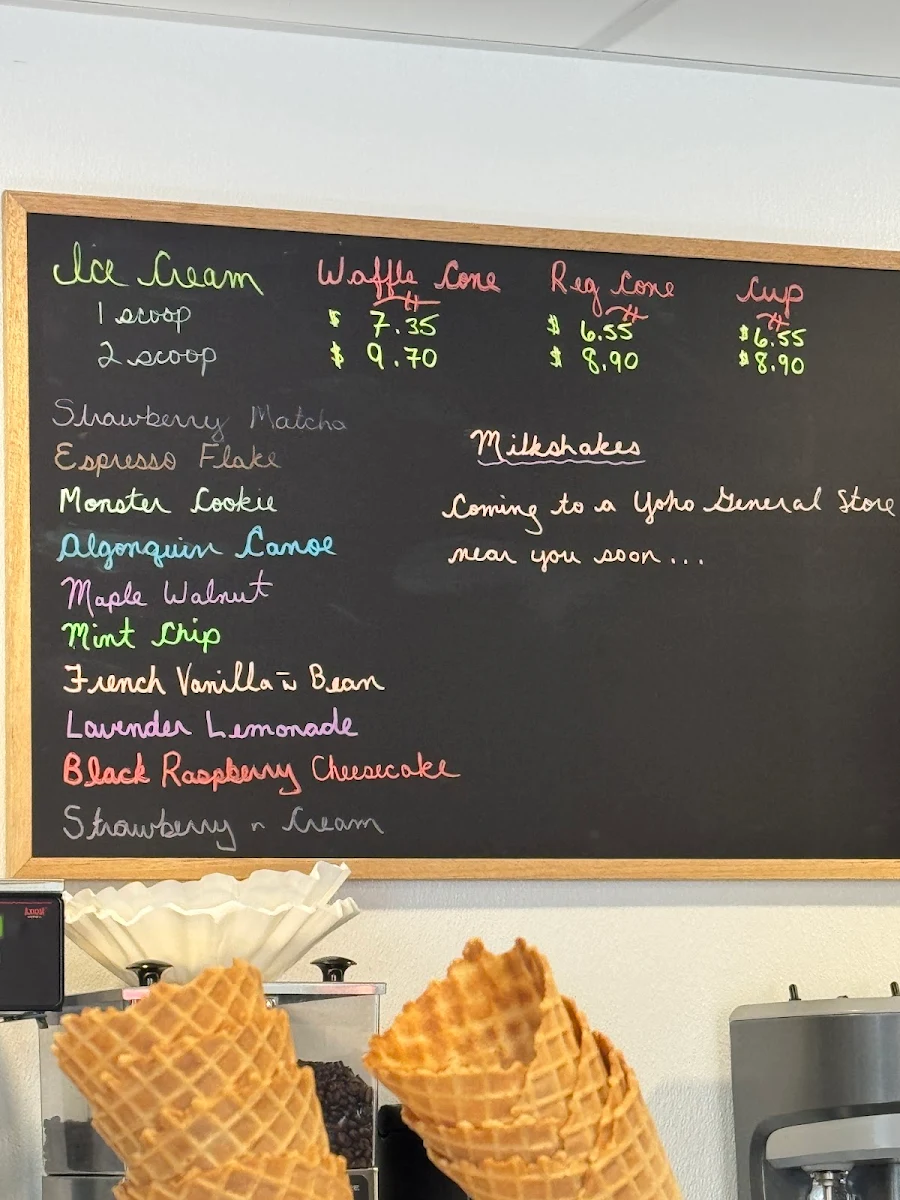 Ice Cream Waffle Cone Reg Cone Cup
1 scoop $ 7.35 $ 6.55 $6.55
2 scoop $ 9.70 $ 8.90 $8.90
Strawberry Matcha
Espresso Flake
Monster Cookie
Algonquin Canoe
Maple Walnut
Mint Chip
French Vanilla Bean
Lavender Lemonade
Black Raspberry Cheesecake
Strawberry n Cream
Milkshakes
Coming to a Yoho General Store
near you soon...